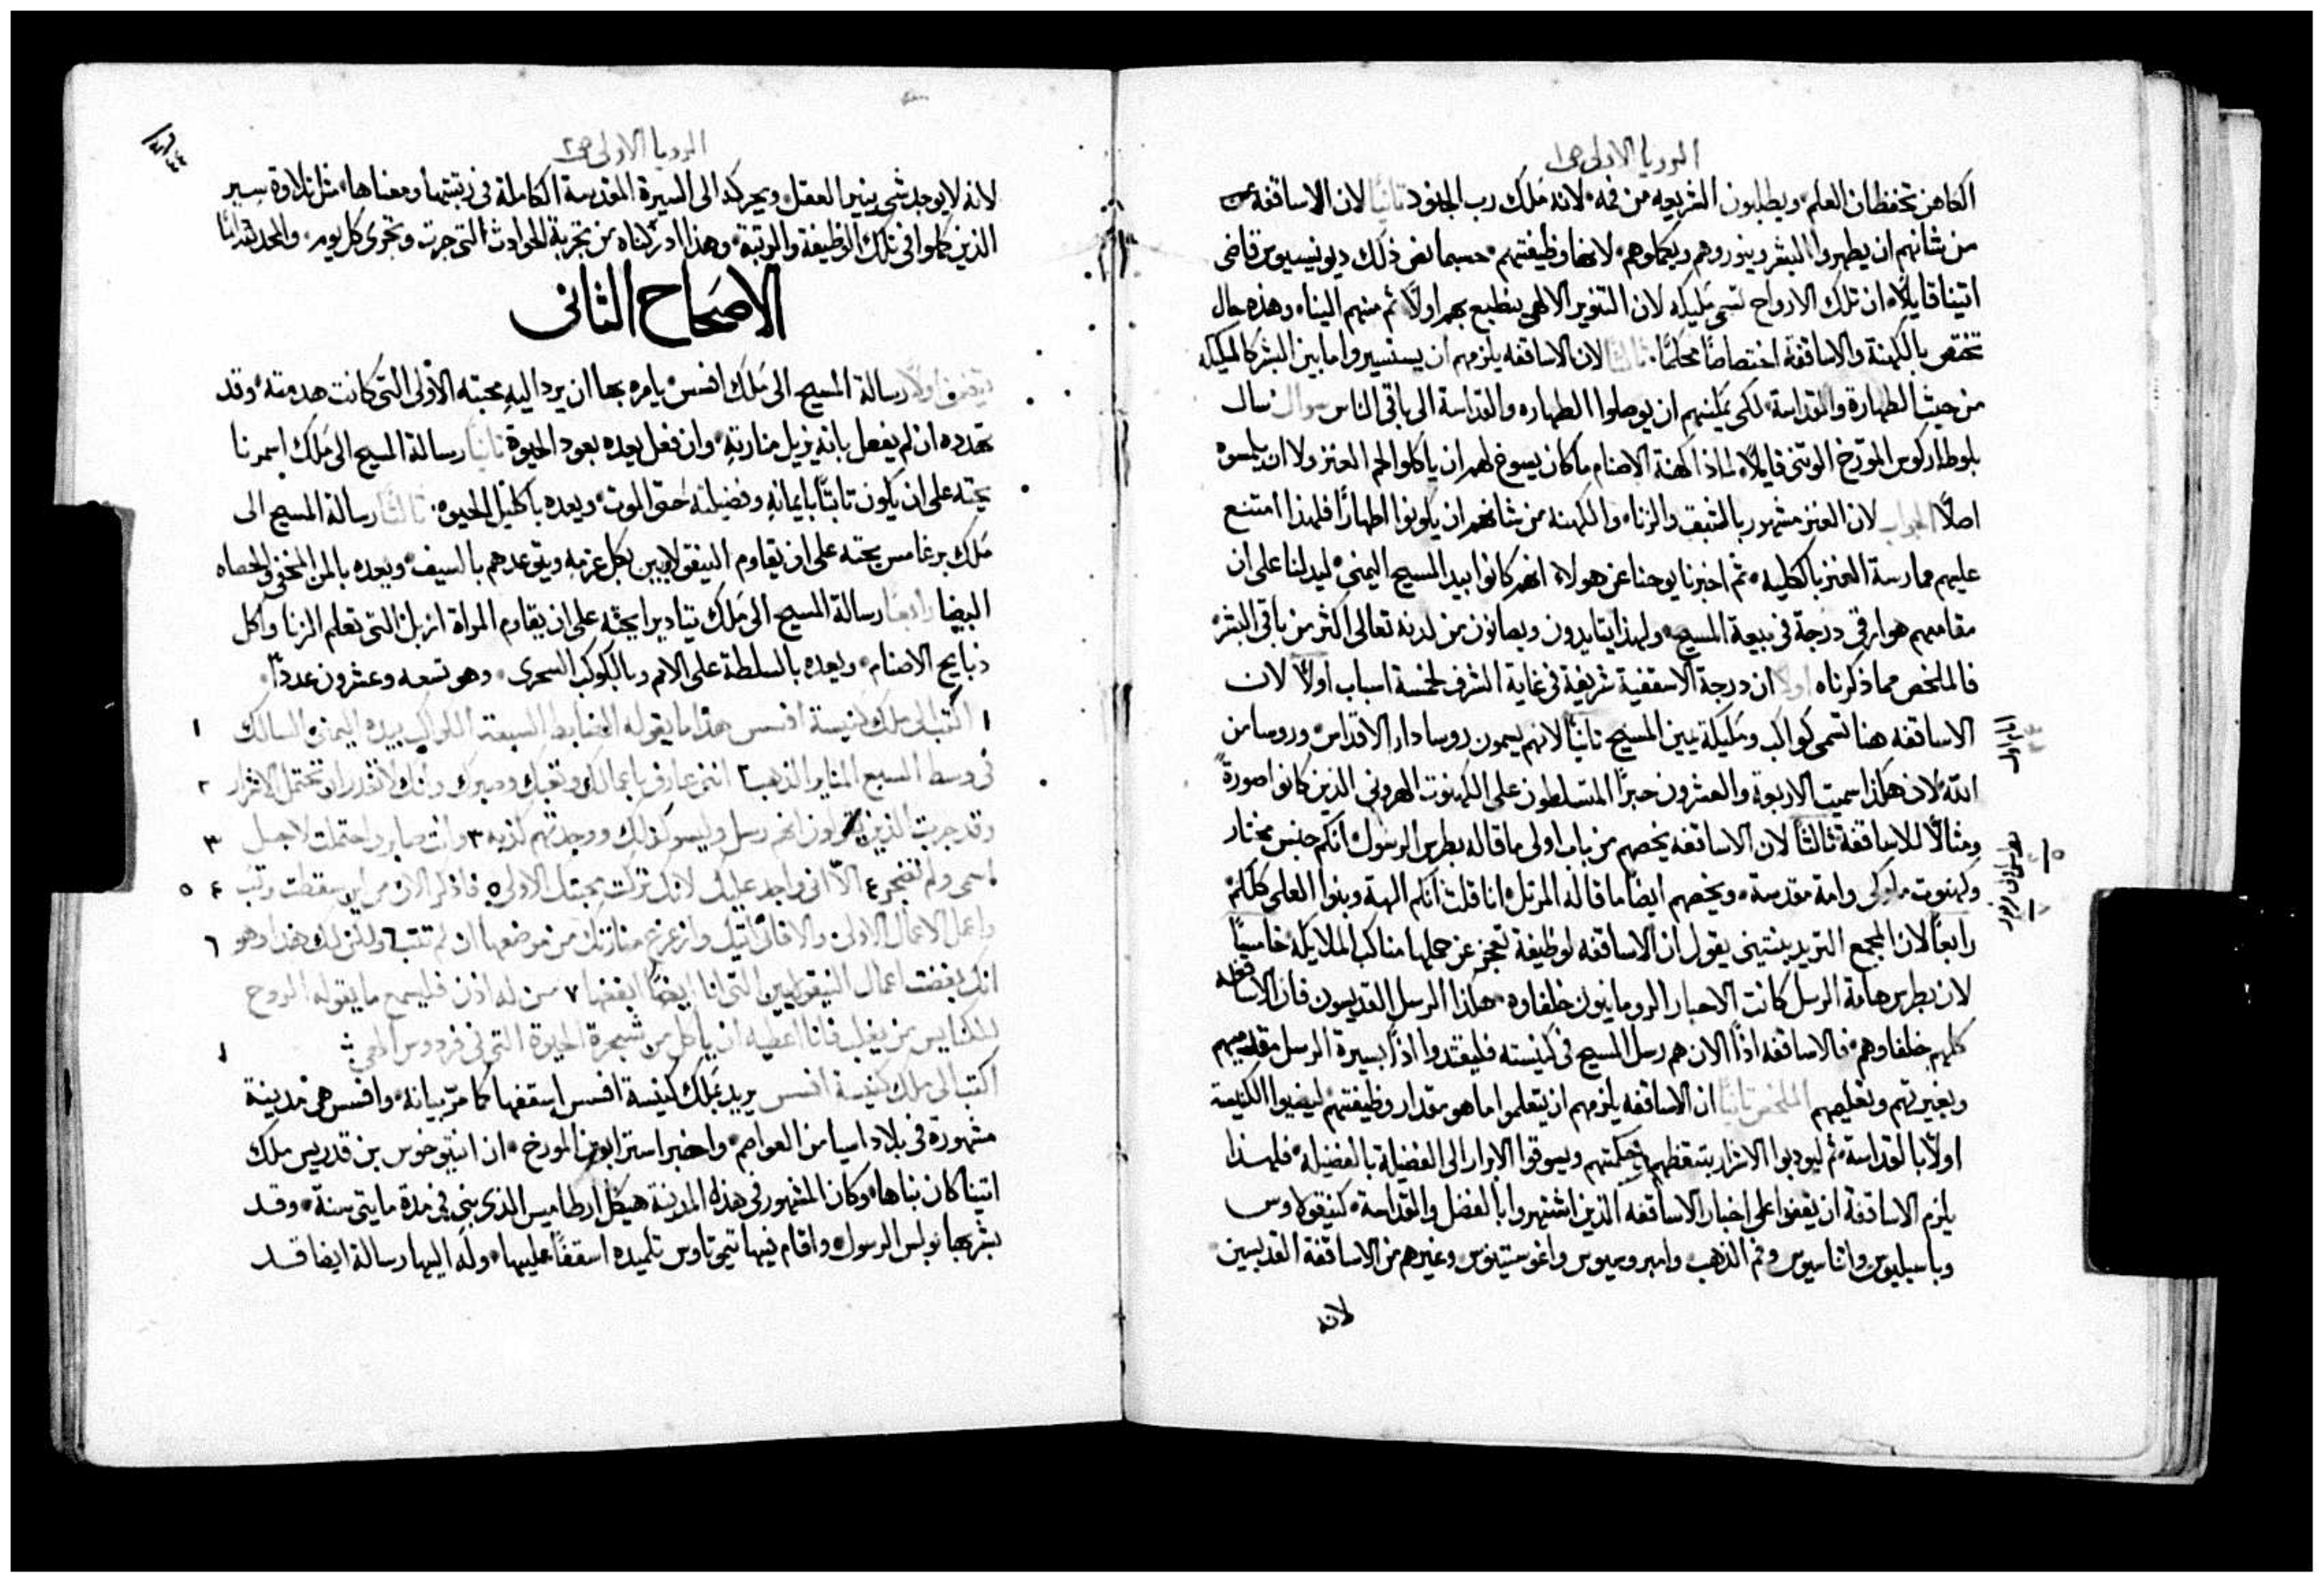 الرويا الاولى ص١
الكاهن تحفظان العلم ويطلبون الشريعه من فمه لانه ملك رب الجنود ثانيا لان الاساقفة
من شانهم ان يطهروا البشر وينوروهم ويكملوهم لانها وظيفتهم حسبما نص ذلك ديونيسيوس قاضى
اتينا قايلا ان تلك الارواح تسمى مليكه لان التنوير الالهى ينطبع بهم اولا ثم منهم الينا وهذه حال
تختص بالكهنة والاساقفة اختصاصا محكما ثالثا لان الاساقفه يلزمهم ان يستسيروا ما بين البشر كالمليكه
من حيث الطهارة والقداسة لكى يمكنهم ان يوصلوا الطهاره والقداسة الى باقى الناس سوال سال
بلوطاركوس المورخ الوثنى قايلا لماذا كهنة الاصنام ما كان يسوغ لهم ان ياكلوا لحم العنز ولا ان يلمسوه
اصلا الجواب لان العنز مشهور بالشبق والزناء والكهنه من شانهم ان يكونوا اطهارا فلهذا امتنع
عليهم ممارسة العنز بالكليه ثم اخبرنا يوحنا عن هولاء انهم كانوا بيد المسيح اليمنى ليدلنا على ان
مقامهم هو ارقى درجة فى بيعة المسيح ولهذا يتايدون ويصانون من لدنه تعالى اكثر من باقى البشر
فالملخص مما ذكرناه اولا ان درجة الاسقفية شريفة فى غاية الشرف لخمسة اسباب اولا لان
الاساقفه هنا تسمى كواكب ومليكة يمين المسيح ثانيا لانهم يسمون روسا دار الاقداس وروسا من
الله لان هكذا سميت الاربعة والعشرون حبرا المتسلطون على الكهنوت الهرونى الذين كانوا صورة
ومثالا للاساقفة ثالثا لان الاساقفه يخصهم من باب اولى ما قاله بطرس الرسول انكم جنس مختار
وكهنوت ملوكى وامة مقدسة ويخصهم ايضا ما قاله المرتل انا قلت انكم الهة وبنوا العلى كلكم
رابعا لان المجمع التريدينتينى يقول ان الاساقفه لوظيفة تعجز عن حملها مناكب الملايكة خامسا
لان بطرس هامة الرسل كانت الاحبار الرومانيون خلفاوه هكذا الرسل القديسون فان الاساقفه
كلهم خلفاوهم فالاساقفه اذا الان هم رسل المسيح فى كنيسته فليقتدوا اذا بسيرة الرسل مقدميهم
وبغيرتهم وتعليمهم الملخص ثانيا ان الاساقفه يلزمهم ان يتعلموا ما هو مقدار وظيفتهم ليضيوا الكنيسة
اولا بالقداسة ثم ليودبوا الاشرار بتيقظهم وحكمتهم ويسوقوا الابرار الى الفضيلة بالفضيله فلهذا
يلزم الاساقفة ان يقفوا على اخبار الاساقفه الذين اشتهروا بالفضل والقداسة كنيقولاوس
وباسيليوس واثناسيوس وفم الذهب وامبروسيوس واغوستينوس وغيرهم من الاساقفة القديسين
لانه
الرويا الاولى ص٢
لانه لا يوجد شى ينير العقل ويحركه الى السيرة المقدسة الكاملة فى رتبتها ومعناها مثل تلاوة سير
الذين كملوا فى تلك الوظيفة والمرتبة وهذا ادركناه من تجربة الحوادث التى جرت وتجرى كل يوم والحمد لله دايما
الاصحاح الثانى
يتضمن اولا رسالة المسيح الى ملك افسس يامره بها ان يرد اليه محبته الاولى التى كانت هدمته وقد
تهدده ان لم يفعل بانه يزيل منارته وان فعل يعده بعود الحيوة ثانيا رسالة المسيح الى ملك اسمرنا
يحثه على ان يكون ثابتا بايمانه وفضيلته حتى الموت ويعده باكليل الحيوه ثالثا رسالة المسيح الى
ملك برغامس يحثه على ان يقاوم النيقولاويين بكل عزمه ويتوعدهم بالسيف ويعده بالمن المخفى والحصاه
البيضا رابعا رسالة المسيح الى ملك تياديرا يحثه على ان يقاوم المراة ازبل التى تعلم الزنا واكل
ذبايح الاصنام ويعده بالسلطة على الامم وبالكوكب السحرى وهو تسعه وعشرون عددا
١ اكتب الى ملك كنيسة افسس هذا ما يقوله الضابط السبعة الكواكب بيده اليمنى السالك ١
فى وسط السبع المناير الذهب ٢ اننى عارف باعمالك وتعبك وصبرك وانك لا تقدر ان تحتمل الاشرار ٢
وقد جربت الذين يقولون انهم رسل وليسو كذلك ووجدتهم كذبه ٣ وانت صابر واحتملت لاجل ٣
اسمى ولم تضجر ٤ الا انى واجد عليك لانك تركت محبتك الاولى ٥ فاذكر الان من اين سقطت وتب ٤ ٥
واعمل الاعمال الاولى والا فانى اتيك وازعزع منارتك من موضعها ان لم تتب ٦ ولكن لك هذا وهو ٦
انك بغضت اعمال النيقولاويين التى انا ايضا ابغضها ٧ من له اذن فليسمع ما يقوله الروح
للكنايس من يغلب فانا اعطيه ان ياكل من شجرة الحيوة التى فى فردوس الهى
اكتب الى ملك كنيسة افسس يريد بملك كنيسة افسس اسقفها كما مر بيانه وافسس هى مدينة
مشهورة فى بلاد اسيا من العواصم واخبر استرابون المورخ ان انتيوخوس بن قدريس ملك
اتينا كان بناها وكان المشهور فى هذه المدينة هيكل ارطاميس الذى بنى فى مدة مايتى سنة وقد
بشر بها بولس الرسول واقام فيها تيموتاوس تلميده اسقفا عليها وله اليها رسالة ايضا قد